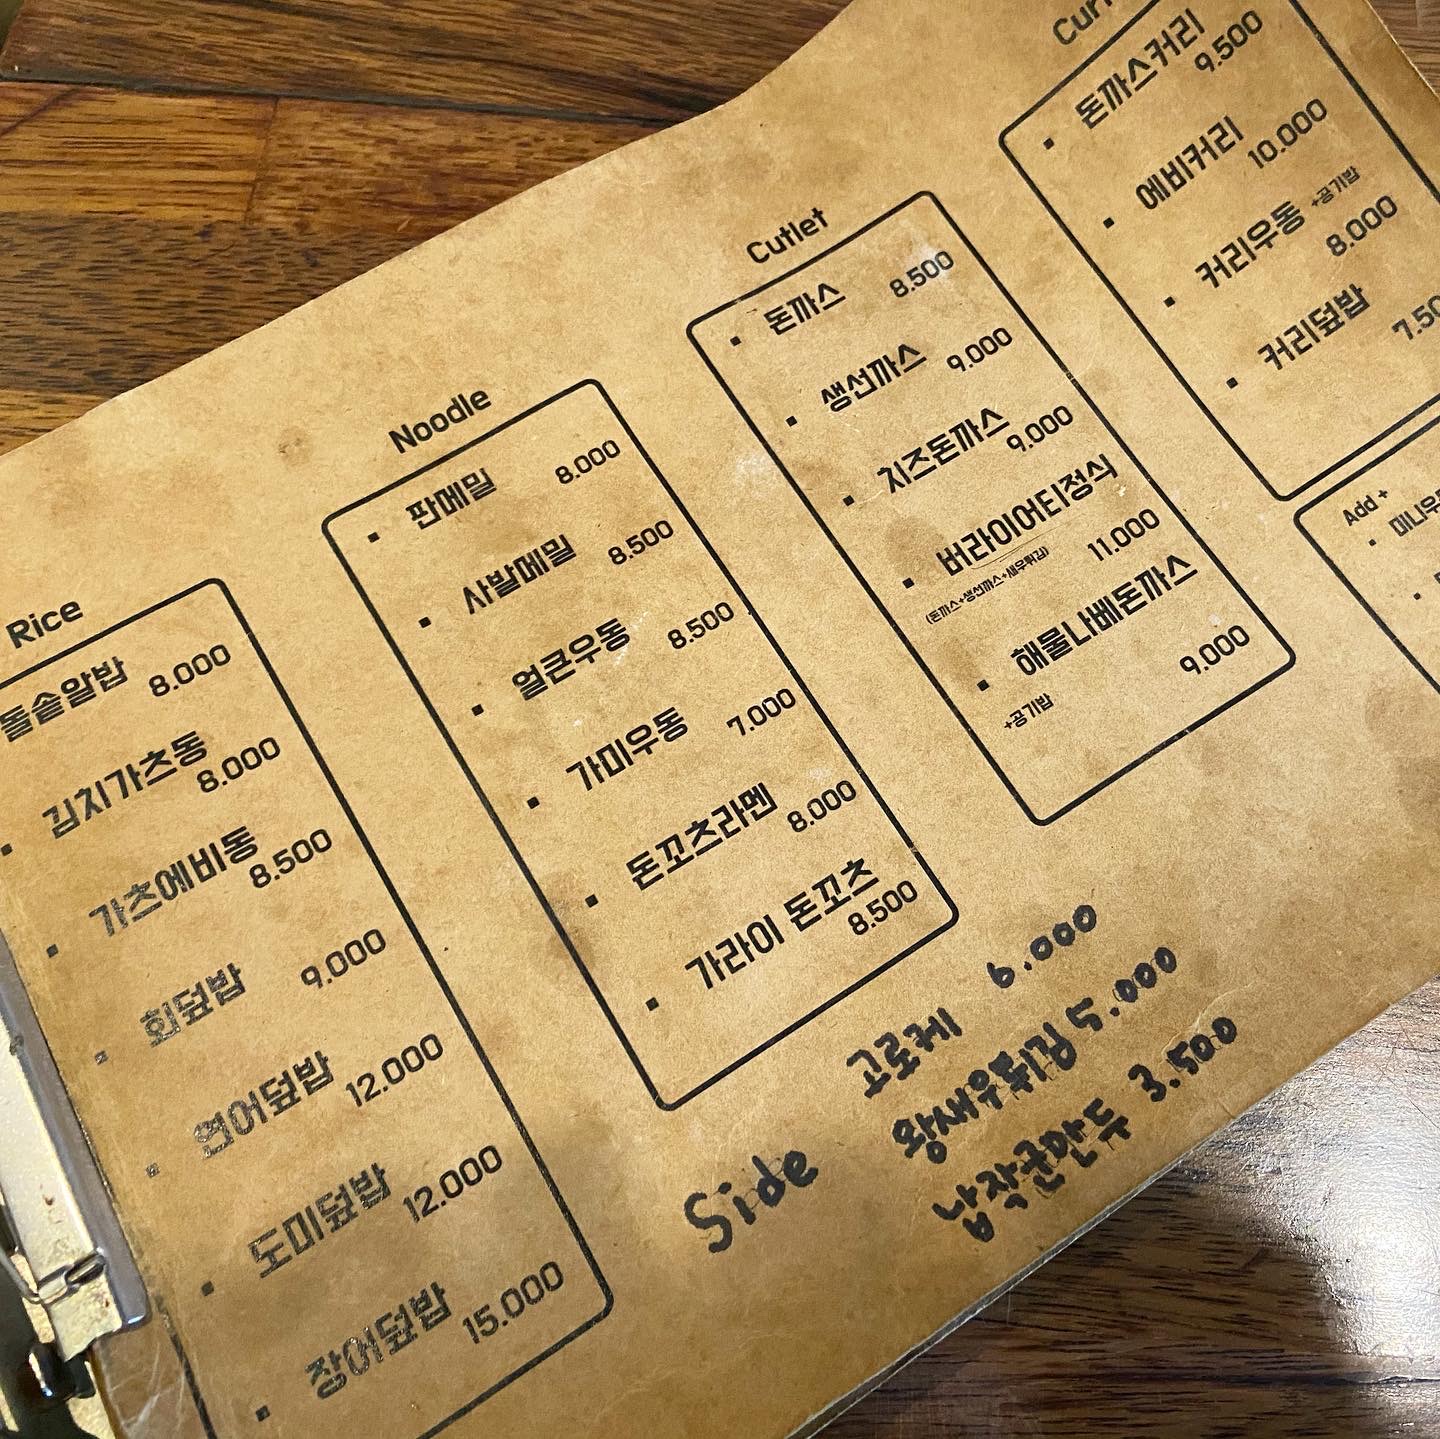 Rice
돌솥알밥 8.000
김치가츠동 8.000
가츠에비동 8.500
회덮밥 9.000
연어덮밥 12.000
도미덮밥 12.000
장어덮밥 15.000
Noodle
판메밀 8.000
사발메밀 8.500
얼큰우동 8.500
가미우동 7.000
돈꼬츠라멘 8.000
가라이 돈꼬츠 8.500
Cutlet
돈까스 8.500
생선까스 9.000
치즈돈까스 9.000
버라이어티정식 11.000
(돈까스+생선까스+새우튀김)
해물나베돈까스 9.000
+공기밥
돈까스커리 9.500
에비커리 10.000
커리우동 +공기밥 8.000
커리덮밥
Add +
Side
고로케 6.000
왕새우튀김 5.000
납작군만두 3.500